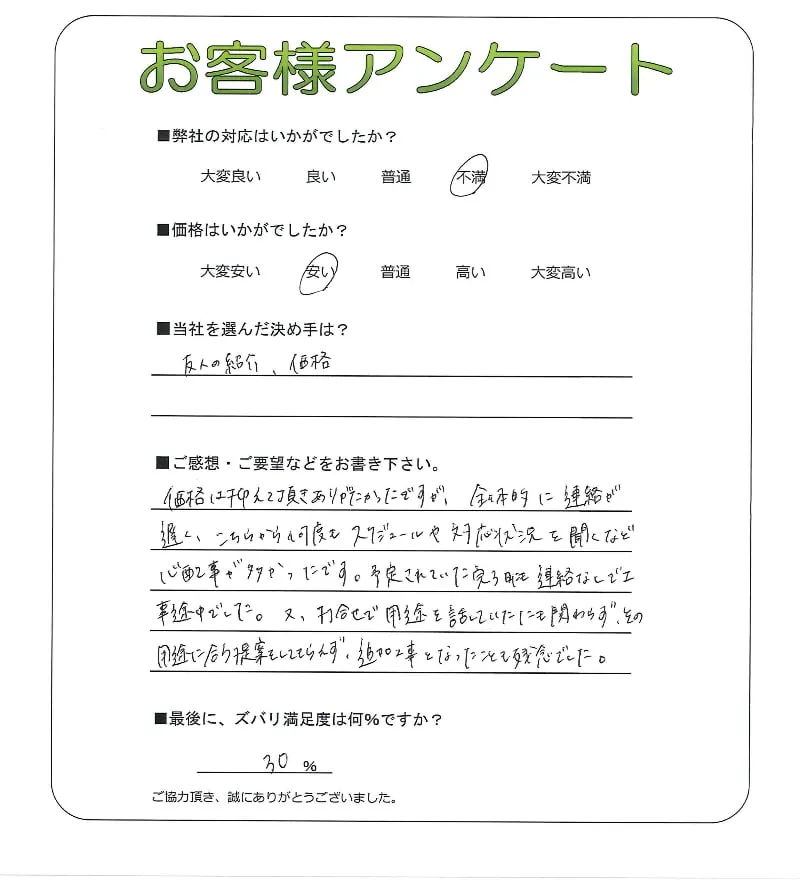 お客様アンケート
■弊社の対応はいかがでしたか？
大変良い 良い 普通 不満 大変不満
■価格はいかがでしたか？
大変安い 安い 普通 高い 大変高い
■当社を選んだ決め手は？
友人の紹介、価格
■ご感想・ご要望などをお書き下さい。
価格は抑えて頂きありがたかったですが、全体的に連絡が
遅く、こちらから何度もスケジュールや対応状況を聞くなど
心配事が多かったです。予定されていた完了日も連絡なしで工
事途中でした。又、打合せで用途を話していたにも関わらず、その
用途に合う提案をしてもらえず、追加工事となったことも残念でした。
■最後に、ズバリ満足度は何%ですか？
30 %
ご協力頂き、誠にありがとうございました。